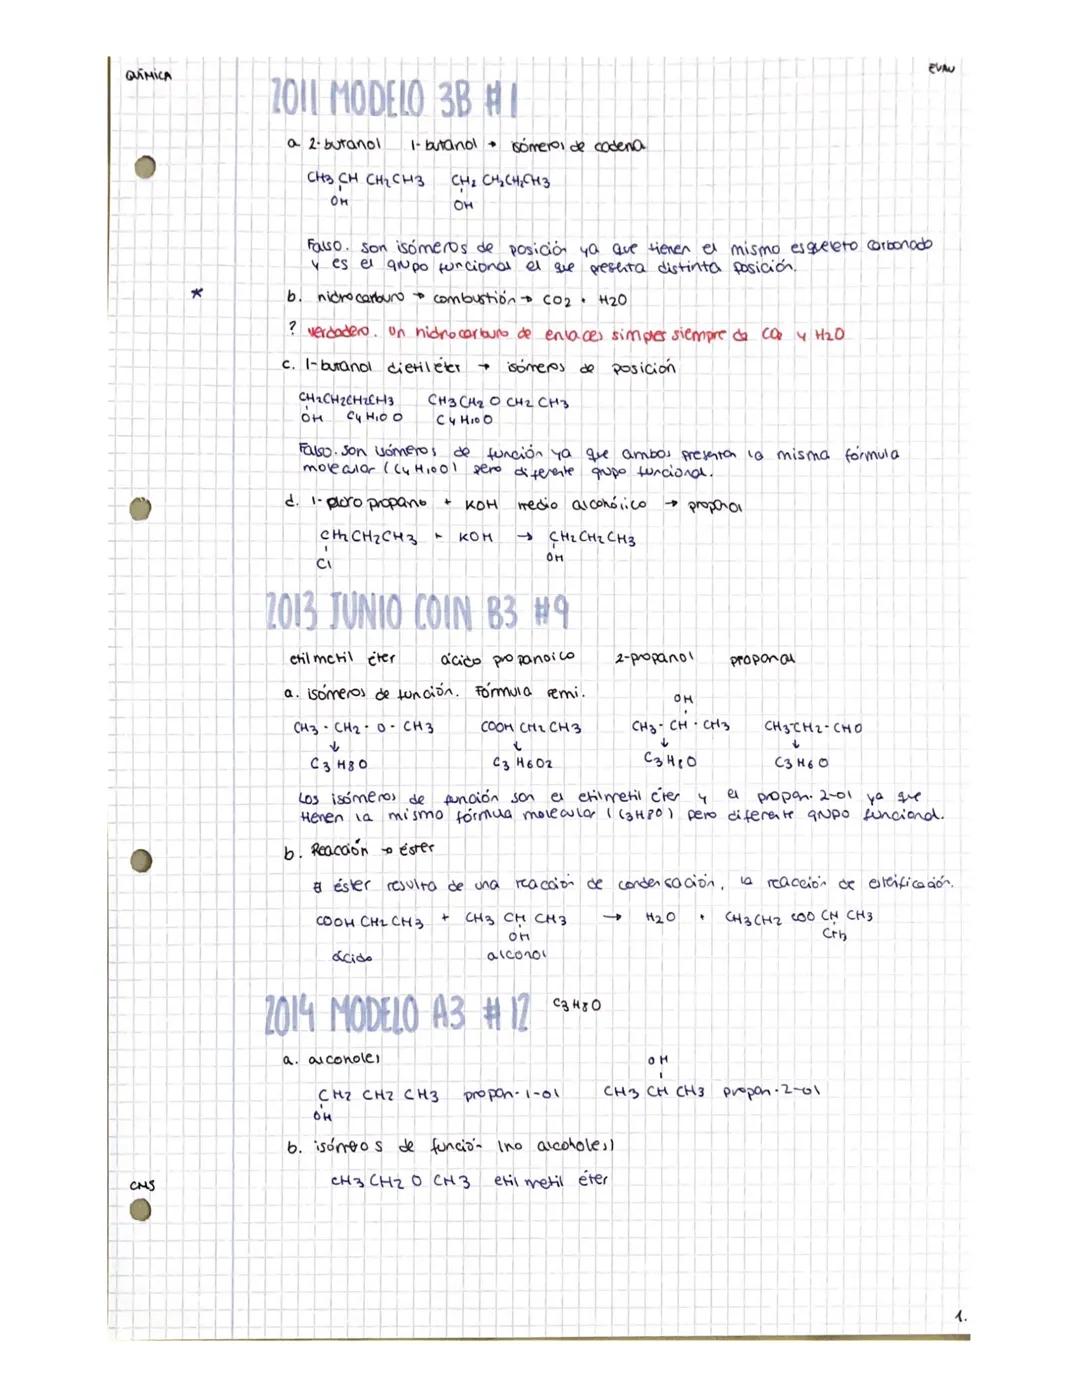 QUÍMICA
EVAU
2011 MODELO 3B #1
a. 2-butanol 1-butanol → isómeros de cadena
CH3 CH CH2 CH3 CH2 CH2 CH2 CH3
OH OH
Falso. son isómeros de posición ya que tienen el mismo esqueleto carbonado
y es el grupo funcional el que presenta distinta posición.
*
b. hidrocarburo → combustión → CO2 + H2O
? verdadero. Un hidrocarburo de enlaces simples siempre da CO2 y H2O
c. 1-butanol dietiléter → isómeros de posición
CH2CH2CH2CH3 CH3 CH2 O CH2 CH3
OH C4H10O C4H10O
Falso. Son isómeros de función ya que ambos presentan la misma fórmula
molecular (C4H10O) pero diferente grupo funcional.
d. 1-cloro propano + KOH medio alcohólico → propanol
CH2 CH2CH3 + KOH → CH2CH2CH3
Cl OH
2013 JUNIO COIN B3 #9
etil metil éter ácido propanoico 2-propanol propanal
a. isómeros de función. Fórmula semi.
OH
CH3 - CH2 - O - CH3 COOH CH2 CH3 CH3 - CH - CH3 CH3-CH2-CHO
↓ ↓ ↓ ↓
C3H8O C3H6O2 C3H8O C3H6O
Los isómeros de función son el etilmetil éter y el propan-2-ol ya que
tienen la misma fórmula molecular (C3H8O) pero diferente grupo funcional.
b. Reacción → éster
El éster resulta de una reacción de condensación, la reacción de esterificación.
COOH CH2 CH3 + CH3 CH CH3 → H2O + CH3CH2 COO CH CH3
OH CH3
ácido alcohol
2014 MODELO A3 #12 C3H8O
a. alcoholes
OH
CH2 CH2 CH3 propan-1-ol CH3 CH CH3 propan-2-ol
OH
b. isómeros de función (no alcoholes)
CH3 CH2 O CH3 etil metil éter
CMS
1.